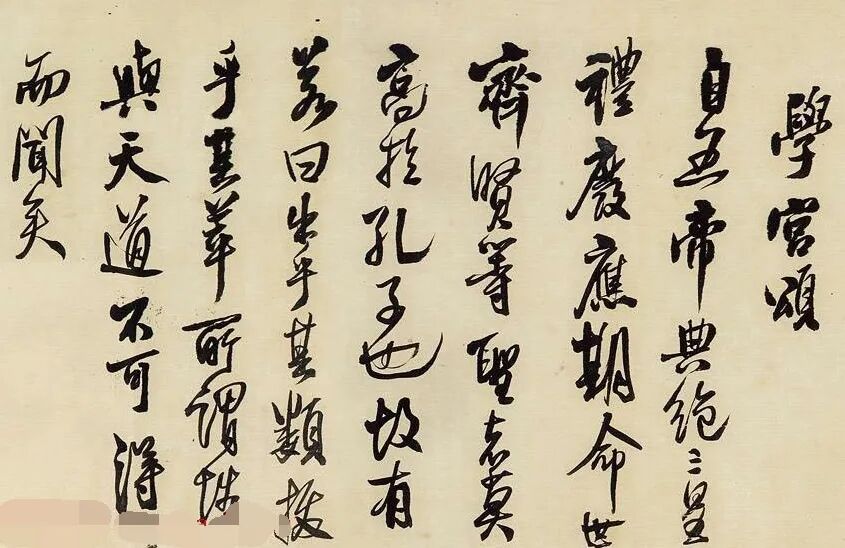 學宮頌
自五帝典絶三皇
禮廢應期命世
齊賢等聖者莫
高於孔子也故有
若曰出乎其類拔
乎其萃所謂性
與天道不可得
而聞矣